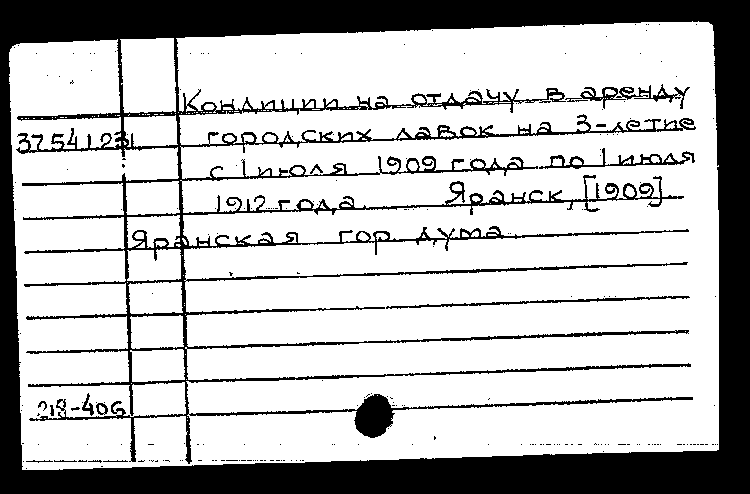 Кондиции на отдачу в аренду
37.54.1.231 городских лавок на 3-летие
с 1 июля 1909 года по 1 июля
1912 года. Яранск, [1909].
Яранская гор. дума.
218-406